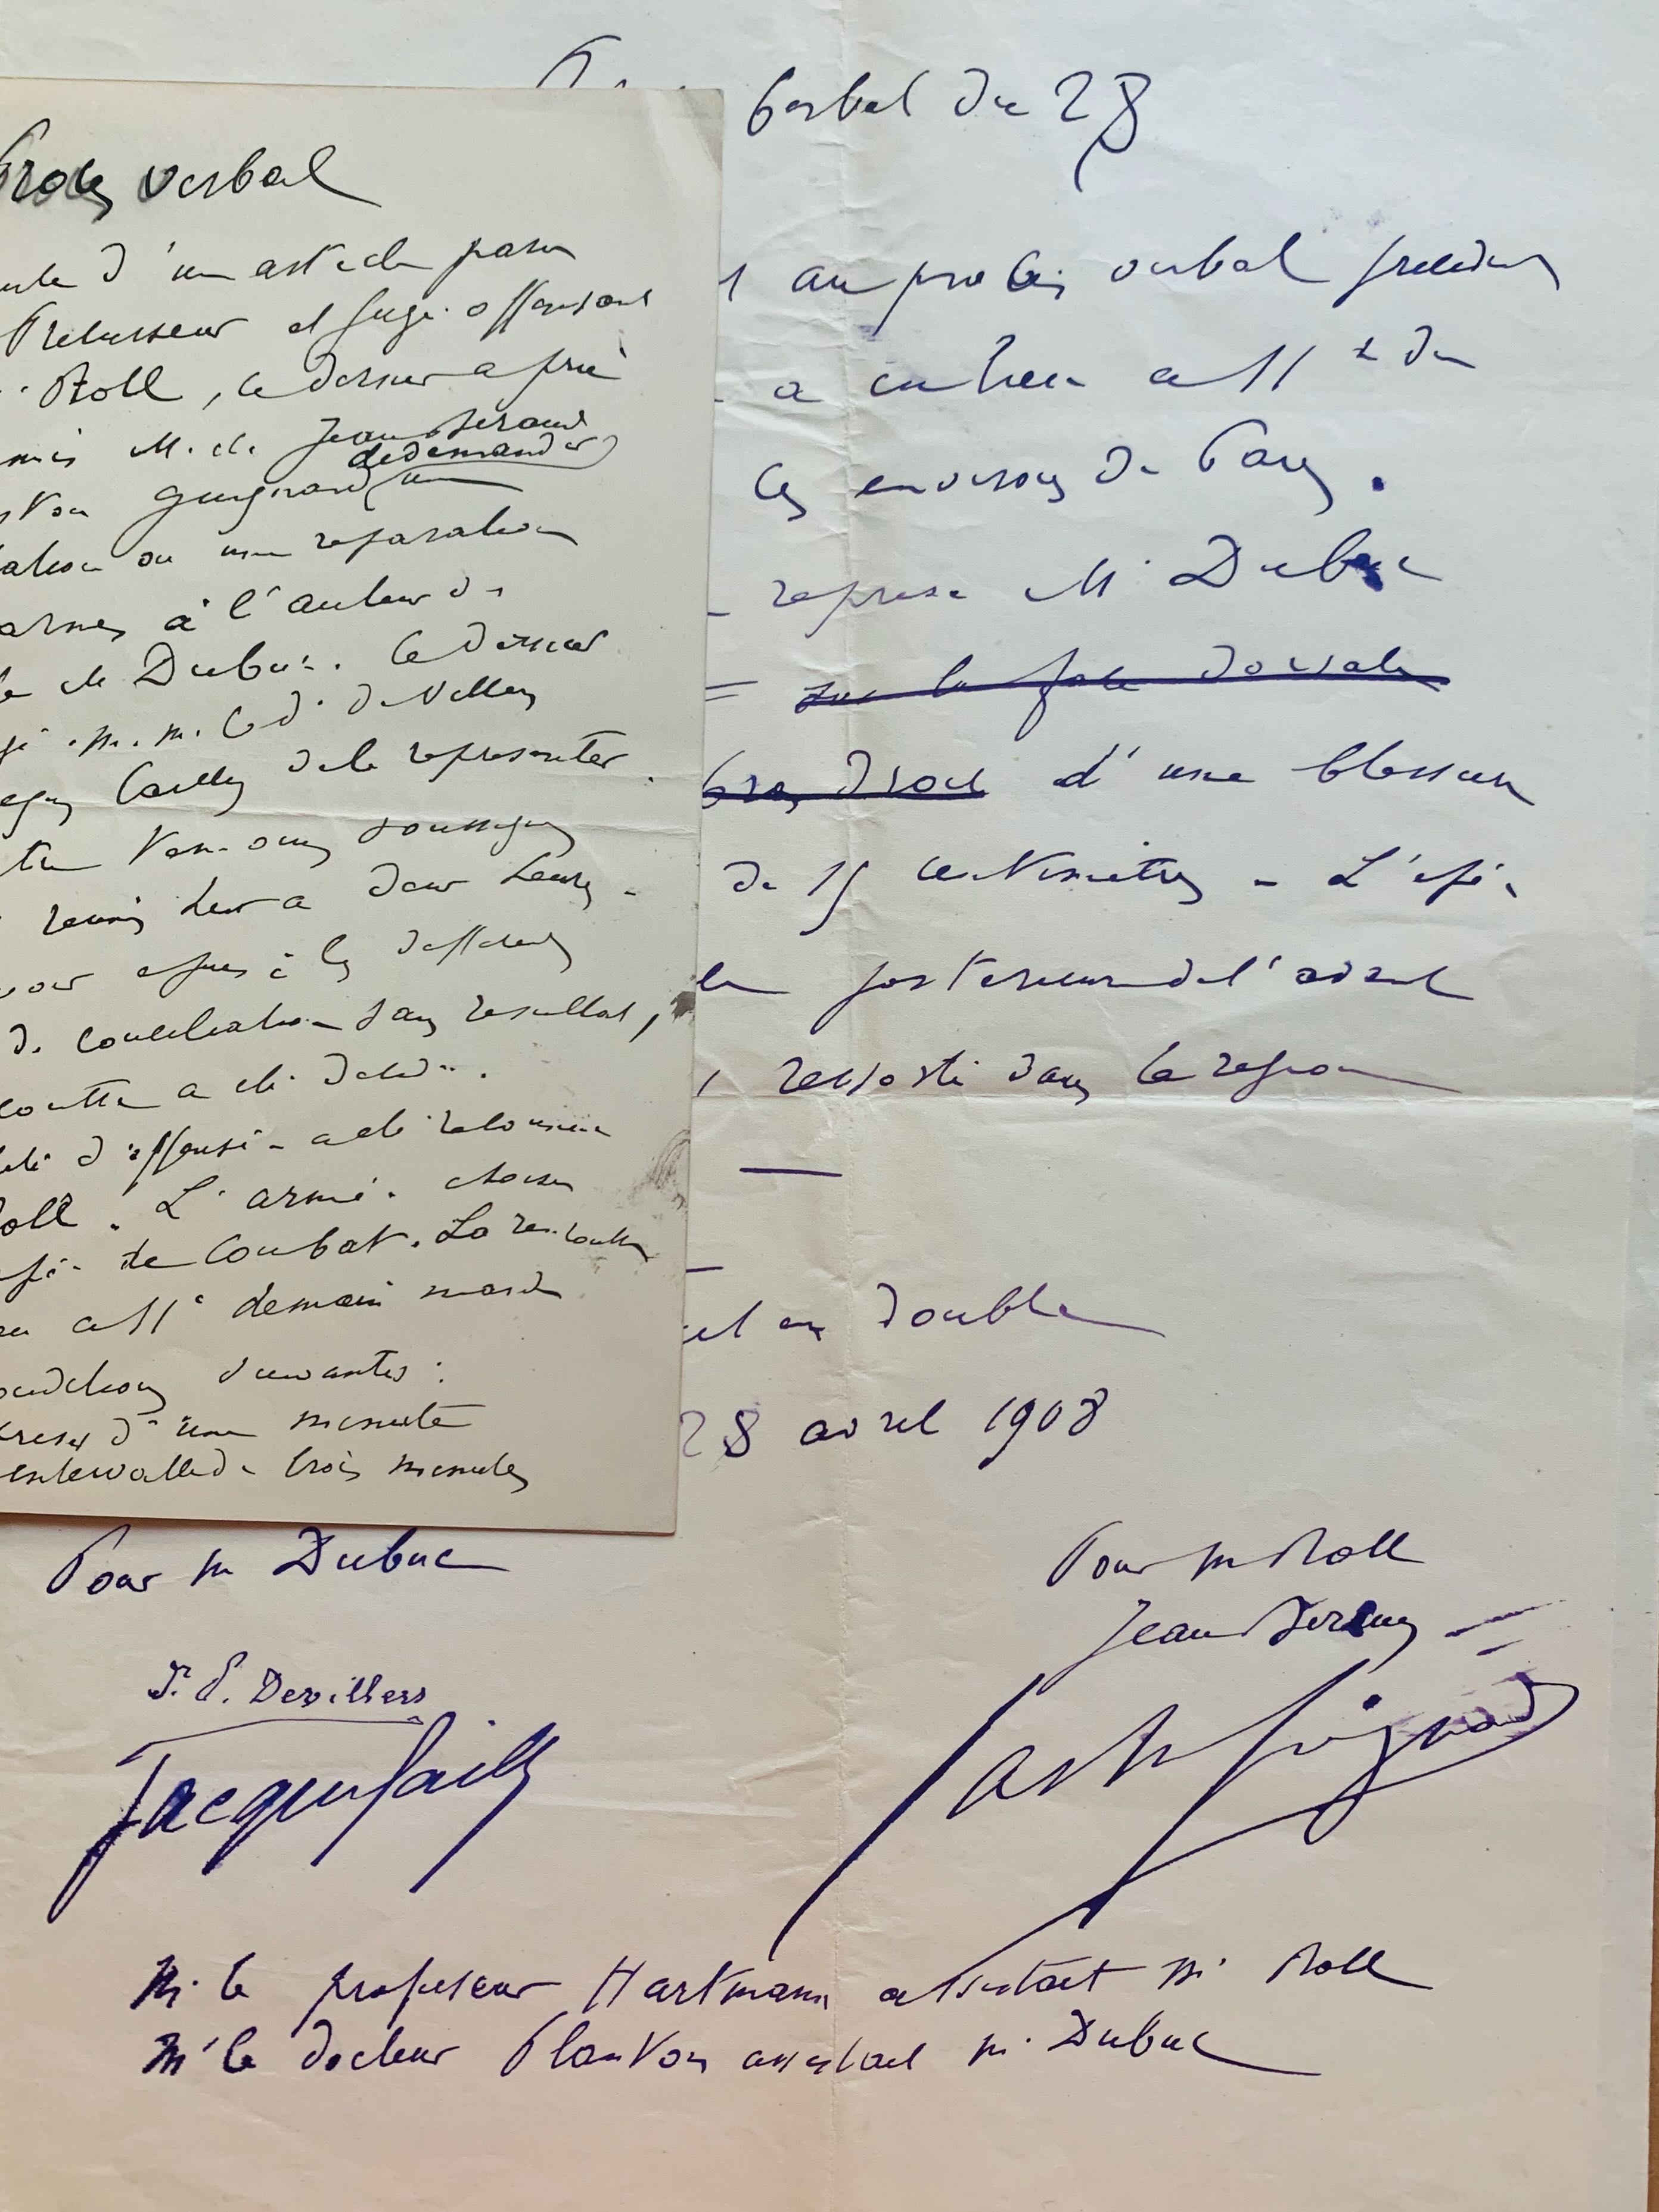 Procès verbal
d'un article paru
Précurseur et jugé offensant
Roll, ce dernier a prié
amis M. de Jean Béraud
de demander
Guignard une
ou une réparation
armes à l'auteur de
de Dubuc. Ce dernier
m.m. Devillers
Cailly de le représenter.
témoins soussignés
réunis hier à deux heures
avoir épuisé les différents
de conciliation sans résultat,
rencontre a été décidée.
d'offensé a été reconnue
Roll. L'arme choisie
épée de combat. La rencontre
à 11h demain mardi
conditions suivantes :
reprises d'une minute
intervalle de trois minutes
verbal du 28
au procès verbal précédent
a eu lieu à 11h du
les environs de Paris.
reprise M. Dubuc
sur la face dorsale
bras droit d'une blessure
de 15 centimètres - L'épée
postérieure de l'avant
ressorti dans la région
en double
28 avril 1908
Pour M Dubuc
Devillers
Jacques Cailly
Pour M Roll
Jean Béraud
Gaston Guignard
M. le professeur Hartmann assistait M. Roll
M. le docteur Planton assistait M. Dubuc